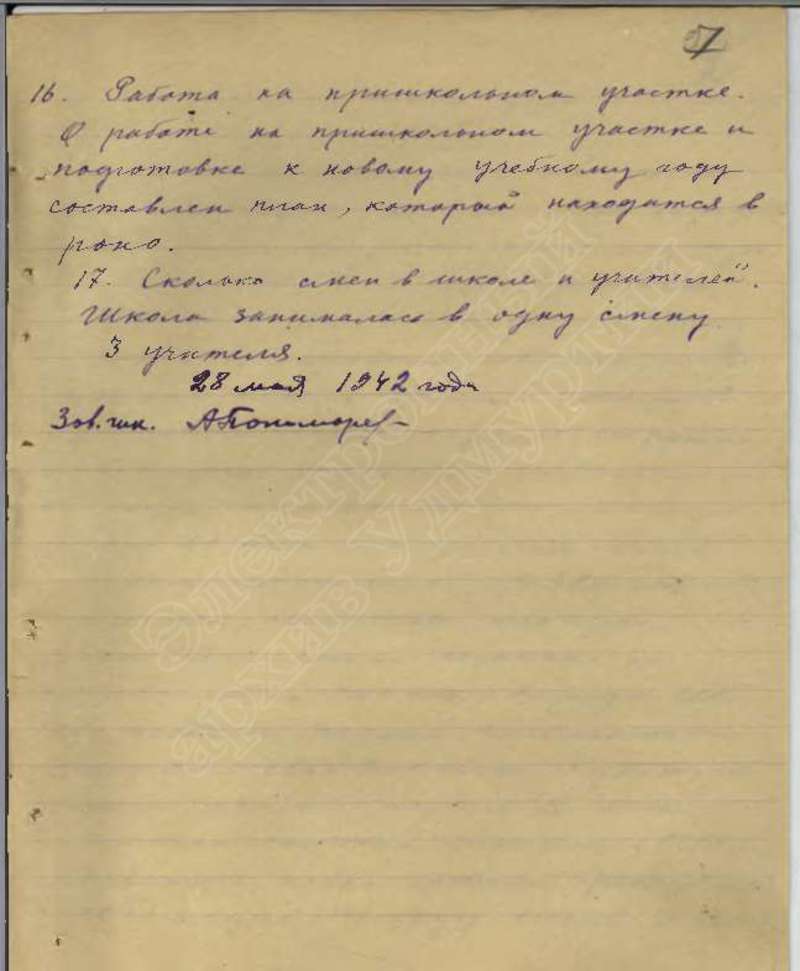 7
16. Работа на пришкольном участке.
О работе на пришкольном участке и
подготовке к новому учебному году
составлен план, который находится в
роно.
17. Сколько смен в школе и учителей.
Школа занималась в одну смену
3 учителя.
28 мая 1942 года
Зав. шк. АПономарев
Электронный
архив Удмуртии